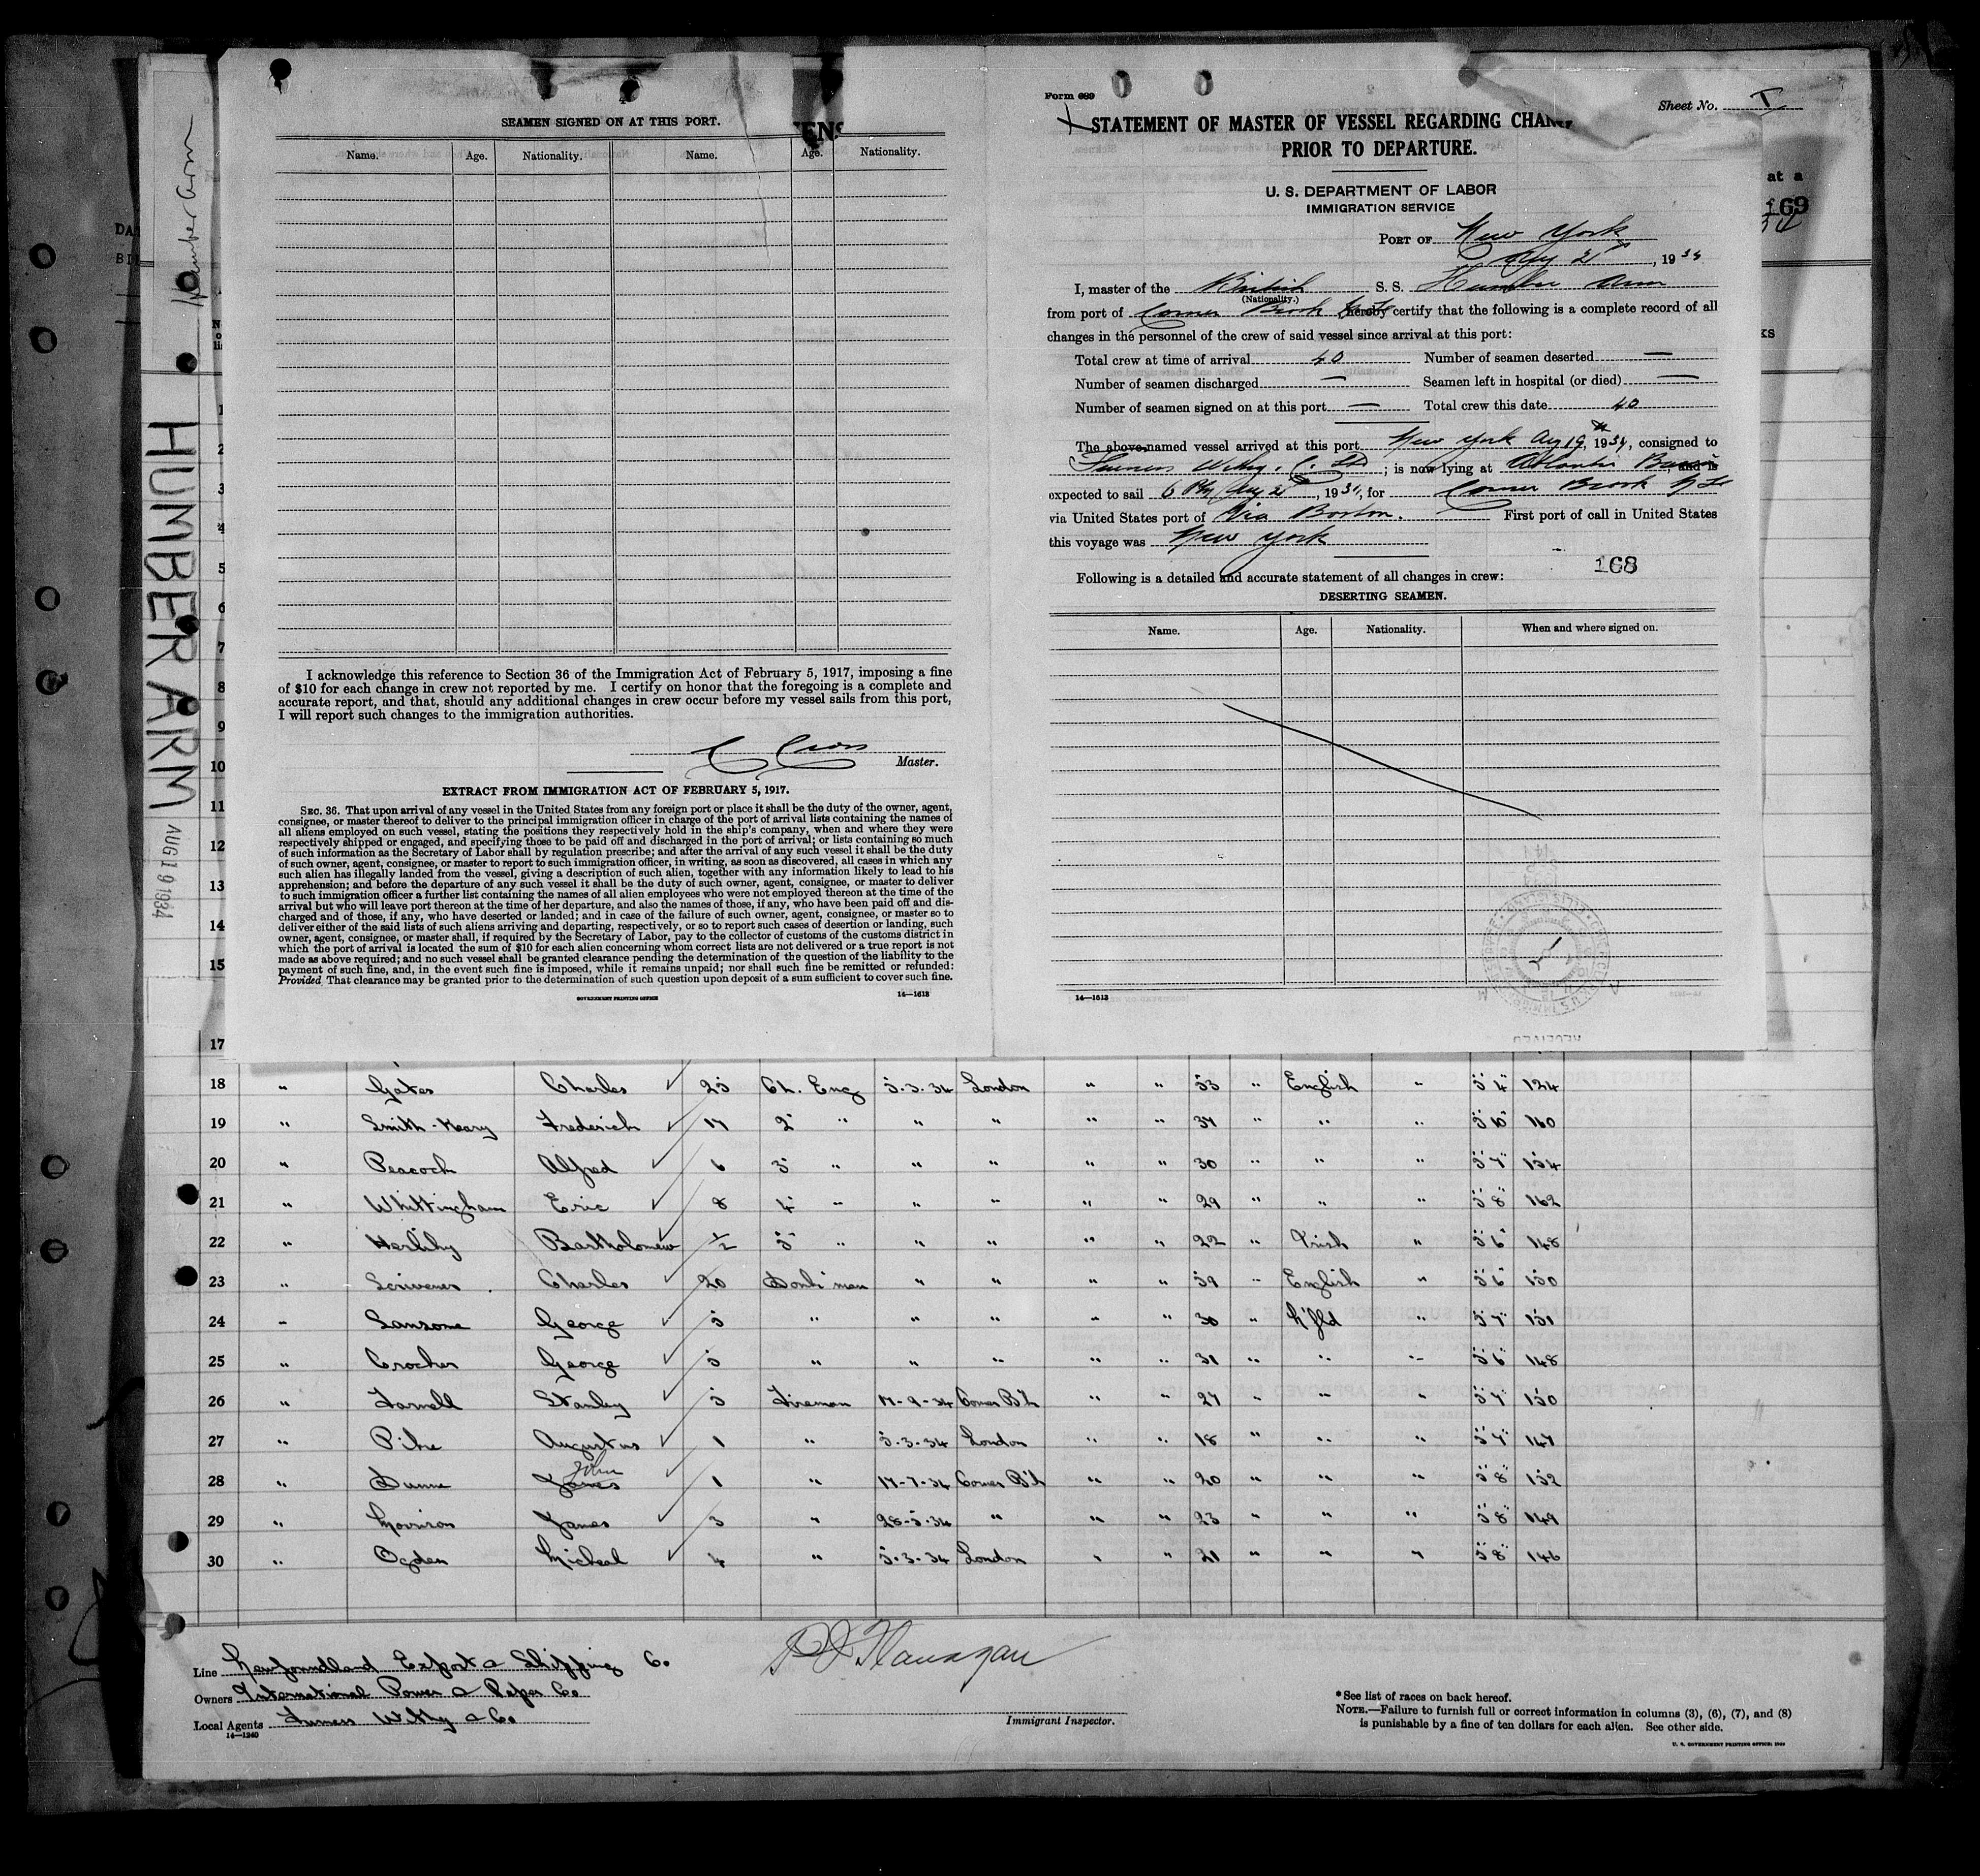 Humber Arm
HUMBER ARM
AUG 19 1934
SEAMEN SIGNED ON AT THIS PORT.
Name. Age. Nationality. Name. Age. Nationality.
I acknowledge this reference to Section 36 of the Immigration Act of February 5, 1917, imposing a fine
of $10 for each change in crew not reported by me. I certify on honor that the foregoing is a complete and
accurate report, and that, should any additional changes in crew occur before my vessel sails from this port,
I will report such changes to the immigration authorities.
C Cross
Master.
EXTRACT FROM IMMIGRATION ACT OF FEBRUARY 5, 1917.
SEC. 36. That upon arrival of any vessel in the United States from any foreign port or place it shall be the duty of the owner, agent,
consignee, or master thereof to deliver to the principal immigration officer in charge of the port of arrival lists containing the names of
all aliens employed on such vessel, stating the positions they respectively hold in the ship's company, when and where they were
respectively shipped or engaged, and specifying those to be paid off and discharged in the port of arrival; or lists containing so much
of such information as the Secretary of Labor shall by regulation prescribe; and after the arrival of any such vessel it shall be the duty
of such owner, agent, consignee, or master to report to such immigration officer, in writing, as soon as discovered, all cases in which any
such alien has illegally landed from the vessel, giving a description of such alien, together with any information likely to lead to his
apprehension; and before the departure of any such vessel it shall be the duty of such owner, agent, consignee, or master to deliver
to such immigration officer a further list containing the names of all alien employees who were not employed thereon at the time of the
arrival but who will leave port thereon at the time of her departure, and also the names of those, if any, who have been paid off and dis-
charged and of those, if any, who have deserted or landed; and in case of the failure of such owner, agent, consignee, or master so to
deliver either of the said lists of such aliens arriving and departing, respectively, or so to report such cases of desertion or landing, such
owner, agent, consignee, or master shall, if required by the Secretary of Labor, pay to the collector of customs of the customs district in
which the port of arrival is located the sum of $10 for each alien concerning whom correct lists are not delivered or a true report is not
made as above required; and no such vessel shall be granted clearance pending the determination of the question of the liability to the
payment of such fine, and, in the event such fine is imposed, while it remains unpaid; nor shall such fine be remitted or refunded:
Provided That clearance may be granted prior to the determination of such question upon deposit of a sum sufficient to cover such fine.
GOVERNMENT PRINTING OFFICE 14—1613
Form 689
Sheet No. I
STATEMENT OF MASTER OF VESSEL REGARDING CHAN
PRIOR TO DEPARTURE.
U. S. DEPARTMENT OF LABOR
IMMIGRATION SERVICE
PORT OF New York
Aug 21, 1934
I, master of the British S. S. Humber Arm
(Nationality.)
from port of Corner Brook hereby certify that the following is a complete record of all
changes in the personnel of the crew of said vessel since arrival at this port:
Total crew at time of arrival 40 Number of seamen deserted —
Number of seamen discharged — Seamen left in hospital (or died) —
Number of seamen signed on at this port — Total crew this date 40
The above-named vessel arrived at this port New York Aug 19, 1934, consigned to
Furness Withy. C. Ltd; is now lying at Atlantic Basin, and is
expected to sail 6 PM Aug 21, 1934, for Corner Brook N Fd
via United States port of Via Boston. First port of call in United States
this voyage was New York
168
Following is a detailed and accurate statement of all changes in crew:
DESERTING SEAMEN.
Name. Age. Nationality. When and where signed on.
14—1613
at a
169
1
2
3
4
5
6
7
8
9
10
11
12
13
14
15
17
18 " Gates Charles ✓ 25 Ch. Eng 5.3.34 London " " 53 " English " 5'4" 124
19 " Smith-Heary Frederick ✓ 17 2" " " " " " 37 " " " 5'10" 160
20 " Peacock Alfred ✓ 6 3" " " " " " 30 " " " 5'7" 154
21 " Whittingham Eric ✓ 8 4" " " " " " 29 " " " 5'8" 162
22 " Herlihy Bartholomew ✓ 1/2 5" " " " " " 22 " Irish " 5'6" 148
23 " Scrivener Charles ✓ 20 Donk'man " " " " 59 " English " 5'6" 150
24 " Sansome George ✓ 5 " " " " " 30 " N'fld " 5'7" 151
25 " Crocker George ✓ 5 " " " " " 31 " " " 5'6" 148
26 " Farnell Stanley ✓ 5 Fireman 17-9-34 Corner B'k " " 27 " " " 5'7" 150
27 " Pike Augustus ✓ 1 " 5.3.34 London " " 18 " " " 5'7" 147
28 " Dunne James John ✓ 1 " 17-7-34 Corner B'k " " 20 " " " 5'8" 152
29 " Morrison James ✓ 3 " 28-5-34 " " " 23 " " " 5'8" 149
30 " Ogden Micheal ✓ 4 " 5.3.34 London " " 21 " " " 5'8" 146
Line Newfoundland Export & Shipping Co.
Owners International Power & Paper Co
Local Agents Furness Withy & Co
14—1240
P J Flanagan
Immigrant Inspector.
*See list of races on back hereof.
NOTE.—Failure to furnish full or correct information in columns (3), (6), (7), and (8)
is punishable by a fine of ten dollars for each alien. See other side.
U. S. GOVERNMENT PRINTING OFFICE: